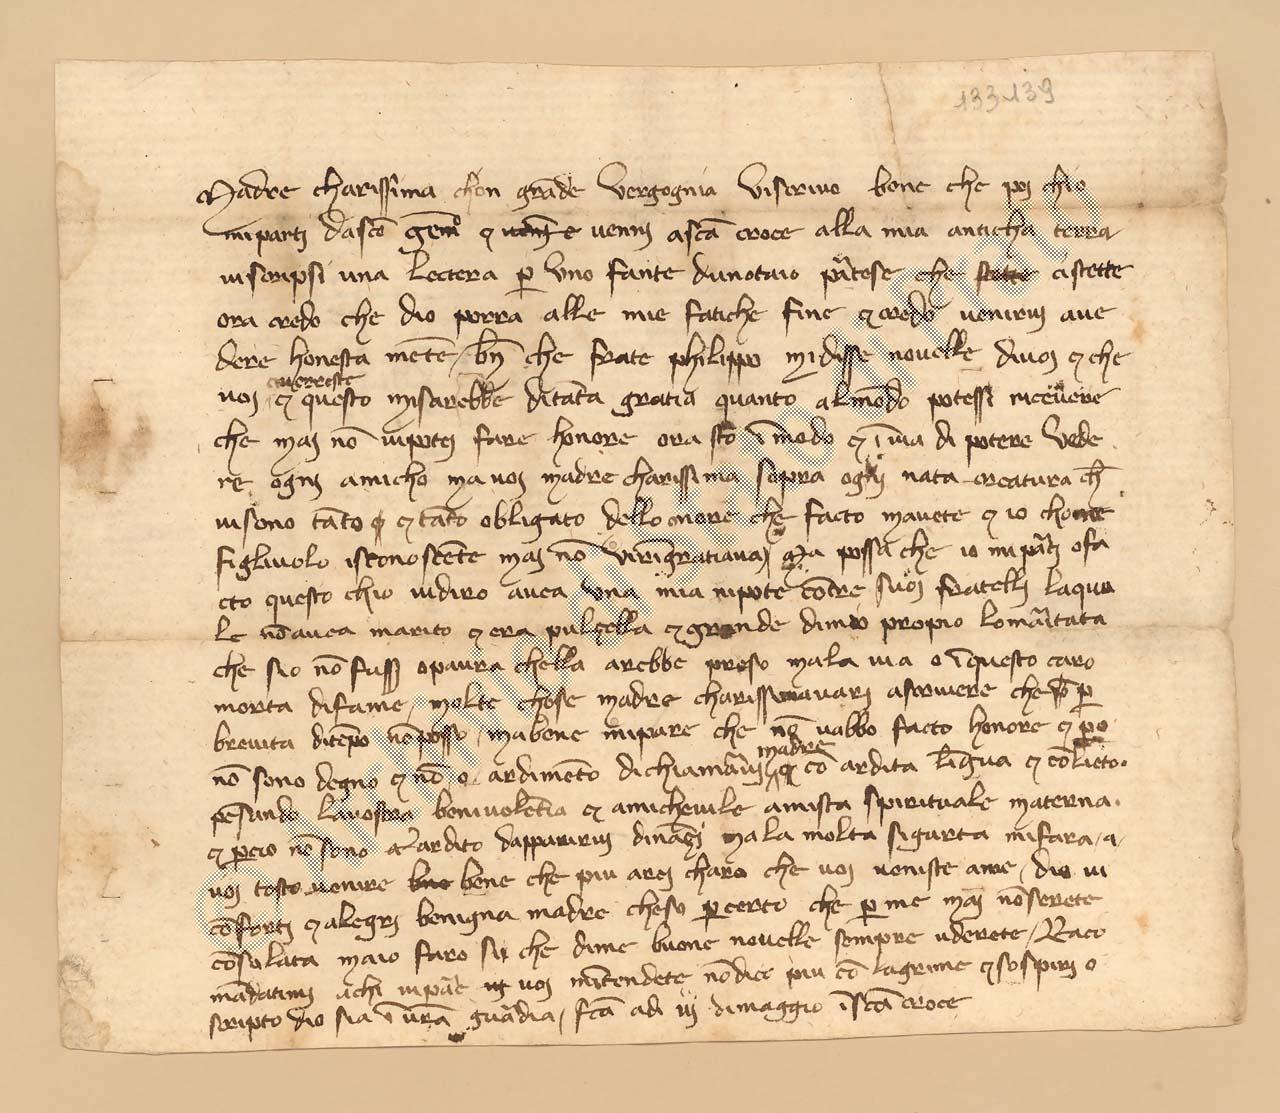 133-139
Madre charissima chon grāde vergognia viscrivo bene che poi chio
miparti dascō gēmo & venni ascā croce alla mia anticha terra
viscripsi una lectera p uno fante dunotaio pātese che cistette
ora credo che dio porra alle mie fatiche fine & credo venirvi ave
dere honesta mēte / bn che frate philippo midisse novelle divoi & che
voi & questo misarebbe ditāta gratia quanto almōdo potessi ricevere
verreste
che mai nō vipotei fare honore ora stō ī modo & ī via di potere vede
re ogni amicho ma voi madre charissima sopra ogni nata creatura ch
visono tāto & tāto obligato dellonore che facto mavete & io chome
figliuolo isconoscēte mai nō viringratiavi Ma possa che io mipāti ofa
cto questo chio vidiro avea una mia nipote cō tre suoi fratelli laqua
le nō avea marito & era pulcella & grande dimio propio lomāitata
che sio nō fuss opaura chella arebbe preso mala via o ī questo caro
morta difame / molte chose madre charissima avari ascrivere che p
brevita ditēpo nō posso / mabene mipare che nō vabbo facto honore & po
nō sono degno & nō o ardimēto dichiamarvi madre cō ardita līgua & cō lieto
pēsando lavostra benivolētia & amichevile amista spirituale materna
& pcio nō sono ardito dapparirvi dināzi mala molta sigurta mifara a
voi tosto venire bene che piu arei charo che voi veniste ame / dio vi
cōforti & alegri benigna madre cheso pcerto che p me mai nō serete
cōsolata maio faro si che dime buone novelle sempre uderete / Raco
mādatimi achi vipāe voi mītendete nō dico piu cō lagrime & sospiri o
scripto dio sia ī vrā guādia / fcā adi iij dimaggio ī scā croce